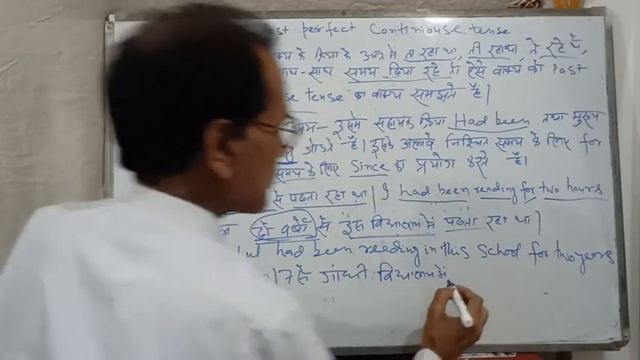 st perfect Continiouse tense
के क्रिया के अन्त में ता रहा था, ती रहा था, ते रहे थे,
साथ-साथ समय दिया रहे तो ऐसे वाक्य को Past
se tense का वाक्य समझते हैं।
इसमें सहायक क्रिया Had been तथा मुख्य
जोड़ते हैं। इसके अलावे निश्चित समय के लिए for
समय के लिए Since का प्रयोग करते हैं।
से पढ़ता रहा था। I had been reading for two hours
दो वर्षों से इस विद्यालय में पढ़ता रहा था।
had been reading in this School for two years
17 से गांधी विद्यालय में